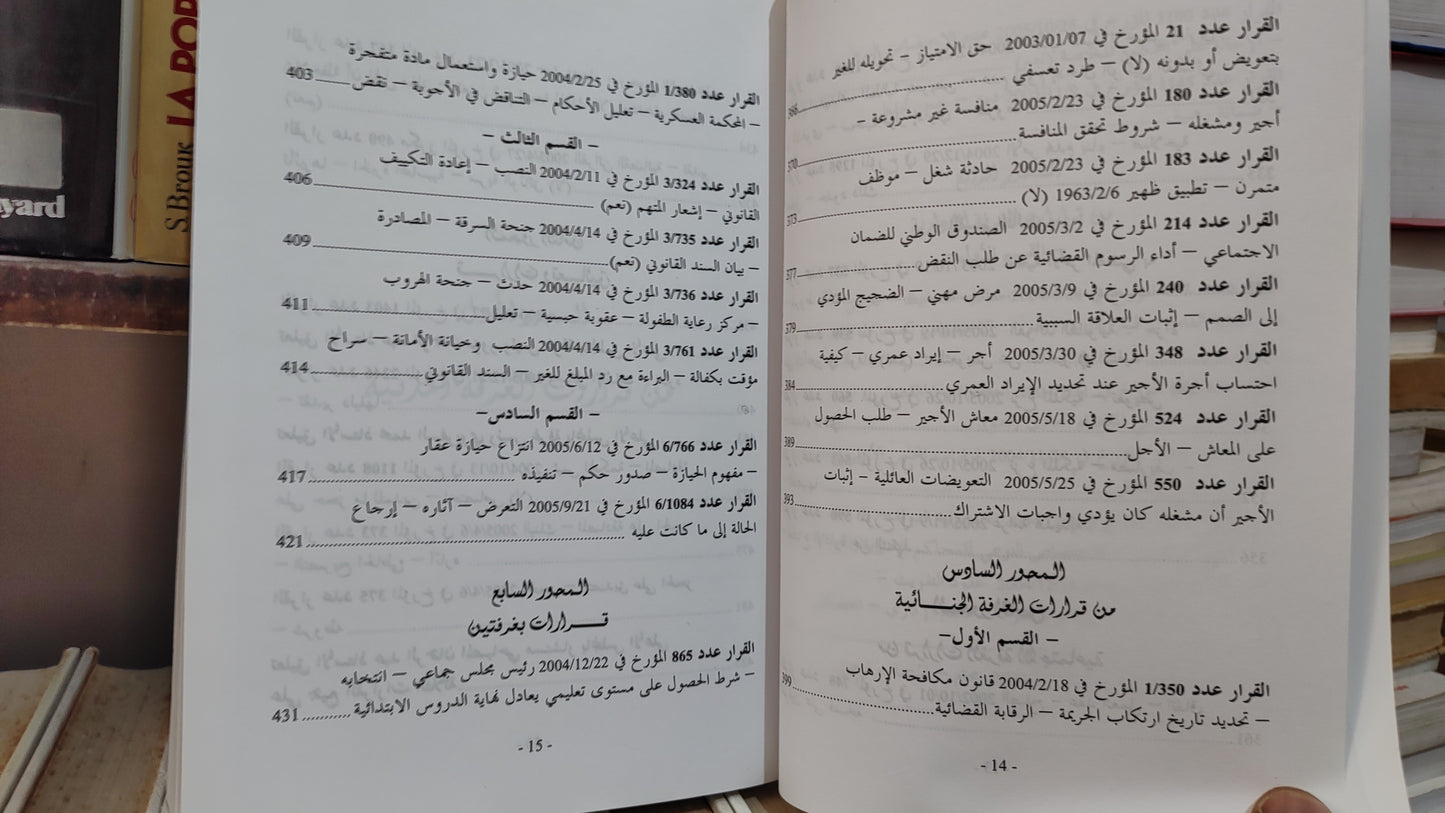 القرار عدد 21 المؤرخ في 2003/01/07 حق الامتياز – تحويله للغير
بتعويض أو بدونه (لا) – طرد تعسفي ............ 366
القرار عدد 180 المؤرخ في 2005/2/23 منافسة غير مشروعة –
أجير ومشغله – شروط تحقق المنافسة ............ 370
القرار عدد 183 المؤرخ في 2005/2/23 حادثة شغل – موظف
متمرن – تطبيق ظهير 1963/2/6 (لا) ............ 373
القرار عدد 214 المؤرخ في 2005/3/2 الصندوق الوطني للضمان
الاجتماعي – أداء الرسوم القضائية عن طلب النقض ............ 377
القرار عدد 240 المؤرخ في 2005/3/9 مرض مهني – الضجيج المؤدي
إلى الصمم – إثبات العلاقة السببية ............ 379
القرار عدد 348 المؤرخ في 2005/3/30 أجر – إيراد عمري – كيفية
احتساب أجرة الأجير عند تحديد الإيراد العمري ............ 384
القرار عدد 524 المؤرخ في 2005/5/18 معاش الأجير – طلب الحصول
على المعاش – الأجل ............ 389
القرار عدد 550 المؤرخ في 2005/5/25 التعويضات العائلية – إثبات
الأجير أن مشغله كان يؤدي واجبات الاشتراك ............ 393
المحور السادس
من قرارات الغرفة الجنائية
– القسم الأول–
القرار عدد 1/350 المؤرخ في 2004/2/18 قانون مكافحة الإرهاب
– تحديد تاريخ ارتكاب الجريمة – الرقابة القضائية ............ 399
- 14 -
القرار عدد 1/380 المؤرخ في 2004/2/25 حيازة واستعمال مادة متفجرة
– المحكمة العسكرية – تعليل الأحكام – التناقض في الأجوبة – نقض ............ 403
– القسم الثالث –
القرار عدد 3/324 المؤرخ في 2004/2/11 النصب – إعادة التكييف
القانوني – إشعار المتهم (نعم) ............ 406
القرار عدد 3/735 المؤرخ في 2004/4/14 جنحة السرقة – المصادرة
– بيان السند القانوني (نعم) ............ 409
القرار عدد 3/736 المؤرخ في 2004/4/14 حدث – جنحة الهروب
– مركز رعاية الطفولة – عقوبة حبسية – تعليل ............ 411
القرار عدد 3/761 المؤرخ في 2004/4/14 النصب وخيانة الأمانة – سراح
مؤقت بكفالة – البراءة مع رد المبلغ للغير – السند القانوني ............ 414
– القسم السادس–
القرار عدد 6/766 المؤرخ في 2005/6/12 انتزاع حيازة عقار
– مفهوم الحيازة – صدور حكم – تنفيذه ............ 417
القرار عدد 6/1084 المؤرخ في 2005/9/21 التعرض – آثاره – إرجاع
الحالة إلى ما كانت عليه ............ 421
المحور السابع
قرارات بغرفتين
القرار عدد 865 المؤرخ في 2004/12/22 رئيس مجلس جماعي – انتخابه
– شرط الحصول على مستوى تعليمي يعادل نهاية الدروس الابتدائية ............ 431
- 15 -
yard
S.Brouk LA POR